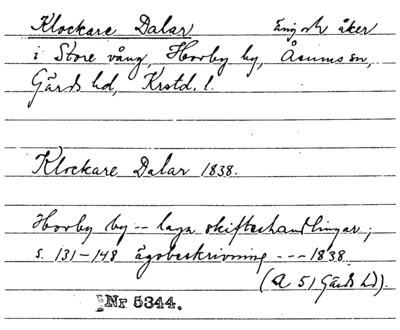 Klockare Dalar äng och åker
i Store vång, Horby by, Åsums sn,
Gärds hd, Krstd. l.
Klockare Dalar 1838.
Horby by -- laga skifteshandlingar;
s. 131-148 ägobeskrivning --- 1838.
(A 51 Gärds hd).
Nr 5344.